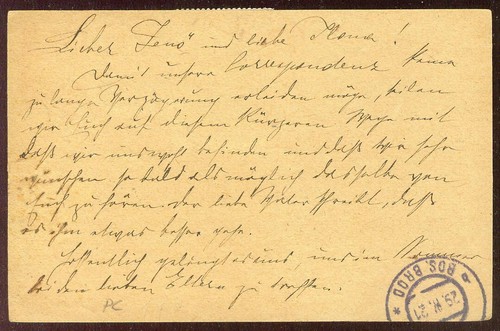 Lieber Jenö und liebe Ilona!
Damit unsere Correspondenz keine
zu lange Verzögerung erleiden möge, teilen
wir Euch auf diesem kürzeren Wege mit
daß wir uns wohl befinden und daß wir sehr
wünschen so bald als möglich dasselbe von
Euch zu hören. Der liebe Vater schreibt, daß
es ihm etwas besser gehe.
Hoffentlich gelingt es uns, uns im Sommer
bei den lieben Eltern zu treffen.
PC
BOS. BROD
29.